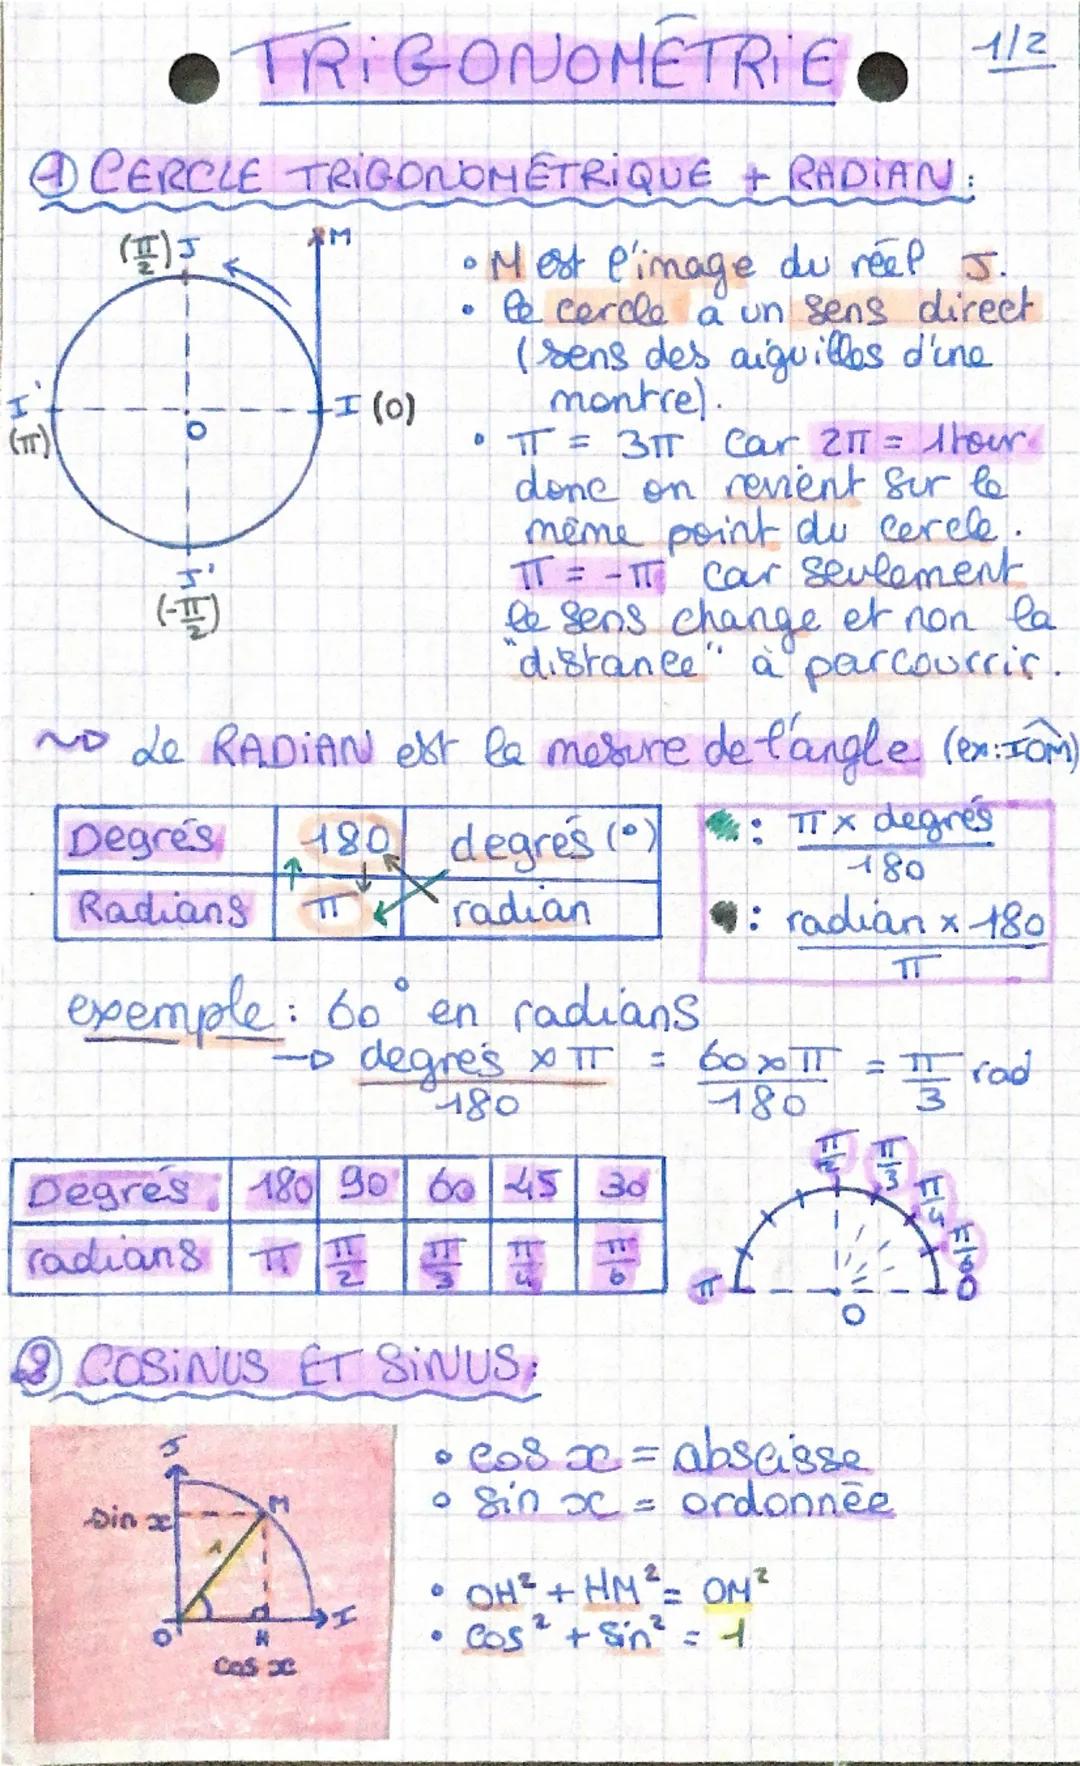 TRIGONOMÉTRIE
1/2
① CERCLE TRIGONOMÉTRIQUE + RADIAN :
(π/2) J
M
I'
(π)
O
I (0)
J'
(-π/2)
• M est l'image du réel J.
• le cercle a un sens direct
(sens des aiguilles d'une
montre).
• π = 3π car 2π = 1 tour
donc on revient sur le
même point du cercle.
π = -π car seulement
le sens change et non la
"distance" à parcourrir.
~> Le RADIAN est la mesure de l'angle (ex: IOM)
Degrés 180 degrés (°)
Radians π radian
: π x degrés / 180
: radian x 180 / π
exemple : 60° en radians
-> degrés x π / 180 = 60 x π / 180 = π/3 rad
Degrés : 180 90 60 45 30
radians π π/2 π/3 π/4 π/6
π π/2 π/3 π/4 π/6 0
O
② COSINUS ET SINUS :
J
sin x
M
1
O
H
I
cos x
• cos x = abscisse
• sin x = ordonnée
• OH² + HM² = OM²
• cos² + sin² = 1